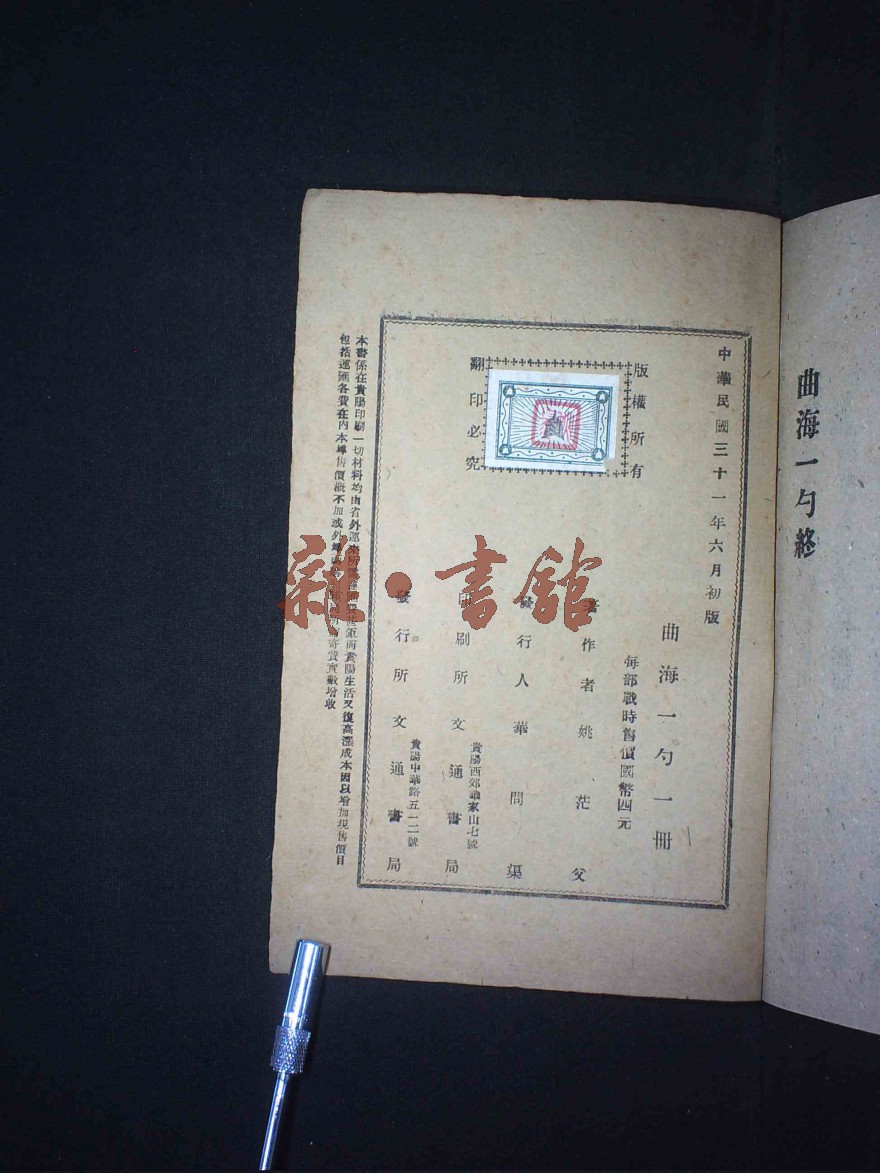 曲海一勺終
中華民國三十一年六月初版
版權所有
翻印必究
曲海一勺一冊
每部戰時售價國幣四元
著作者姚茫父
發行人華問渠
印刷所文通書局
貴陽西郊 家山七號
發行所文通書局
貴陽中華路五一二號
本書係在貴陽印刷一切材料均由省外運來所 而貴陽生活又復高漲成本因以增加現售價目
包括運匯各費在內本埠售價概不加成外埠 寄費實數增收
雜·書館